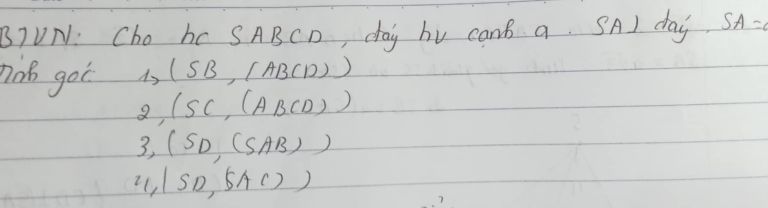 BTVN: Cho hc SABCD, đáy hv cạnh a. SA⊥ đáy. SA=a
Tính góc 1, (SB, (ABCD))
2, (SC, (ABCD))
3, (SD, (SAB))
4, (SD, SAC))